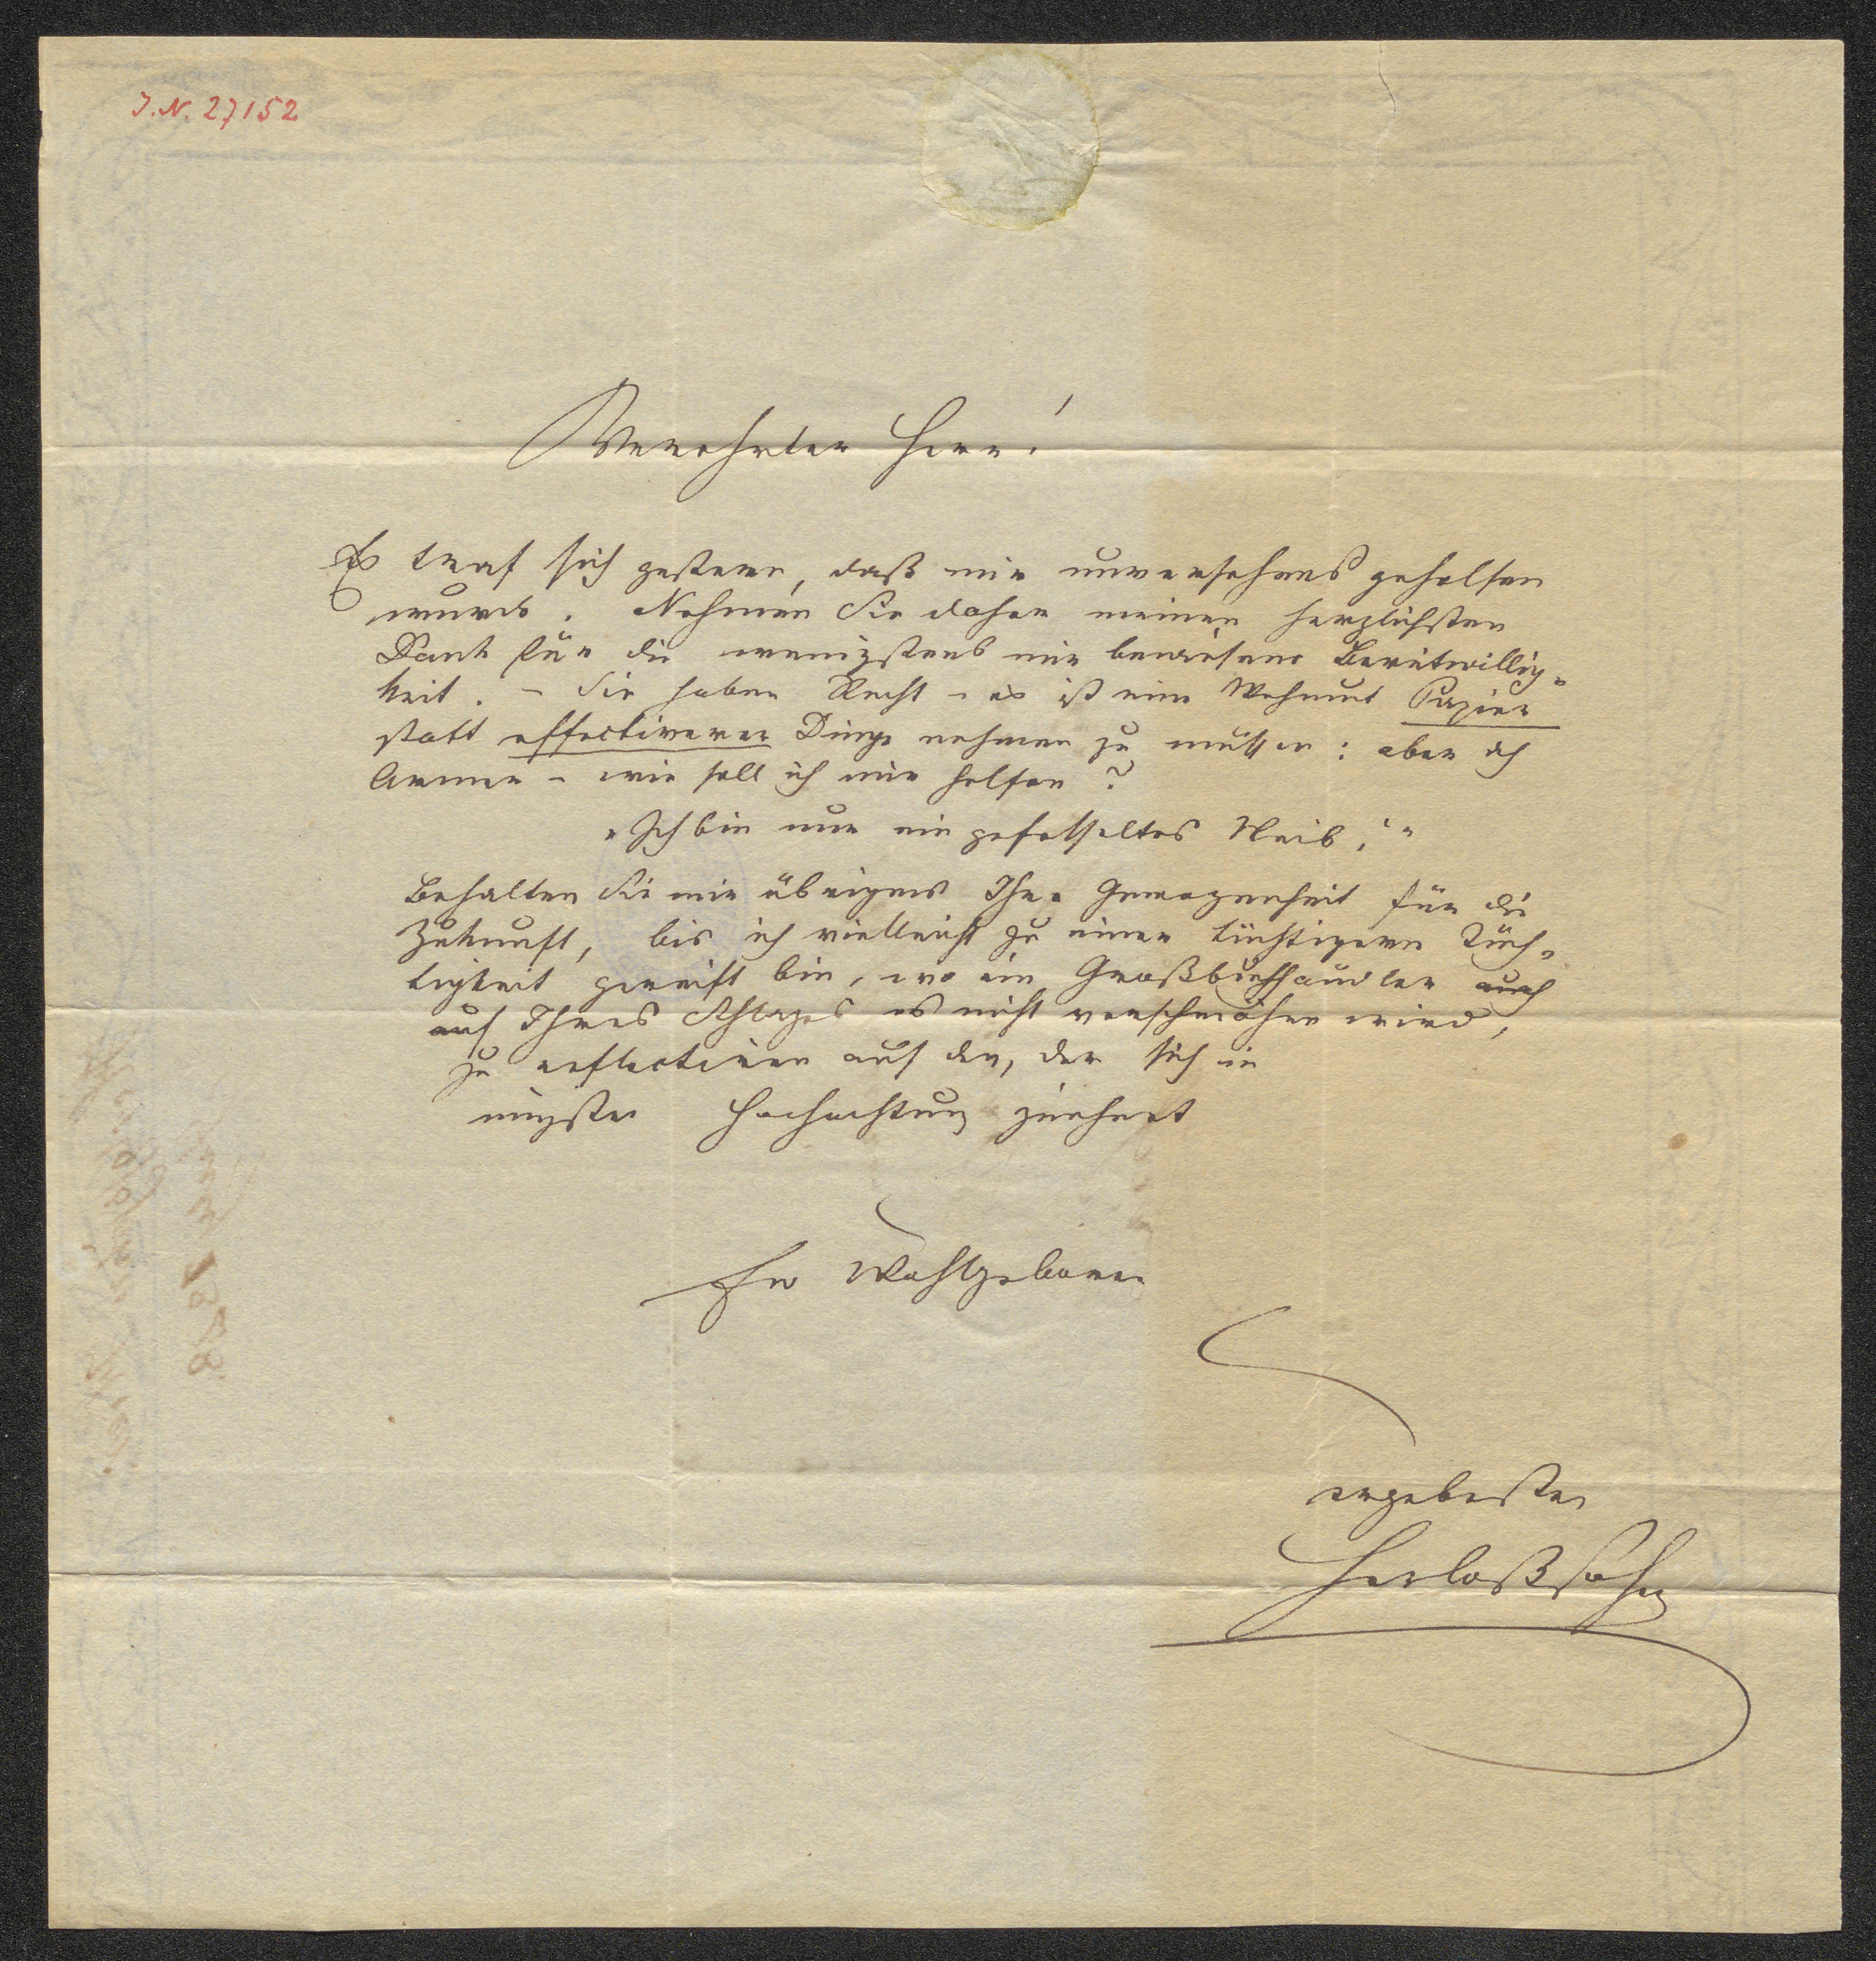 J. N. 27152
Verehrter Herr!
Es traf sich gestern, daß mir unversehens geholfen
wurde. Nehmen Sie daher meinen herzlichsten
Dank für die wenigstens mir bewiesene Bereitwillig-
keit. – Sie haben Recht – es ist eine Wehmut Papier
statt effectiverer Dinge nehmen zu müssen: aber ich
Armer – wie soll ich mir helfen?
„Ich bin nur ein gefesseltes Weib!“
Behalten Sie mir übrigens Ihre Gewogenheit für die
Zukunft, bis ich vielleicht zu einer tüchtigern Tüch-
tigkeit gereift bin, wo ein Großbuchhändler auch
auf Ihres Schlages es nicht verschmähen wird,
zu reflectiren auf den, der sich in
Hochachtung zeichnet
Ew Wohlgeboren
ergebenster
Herloßsohn